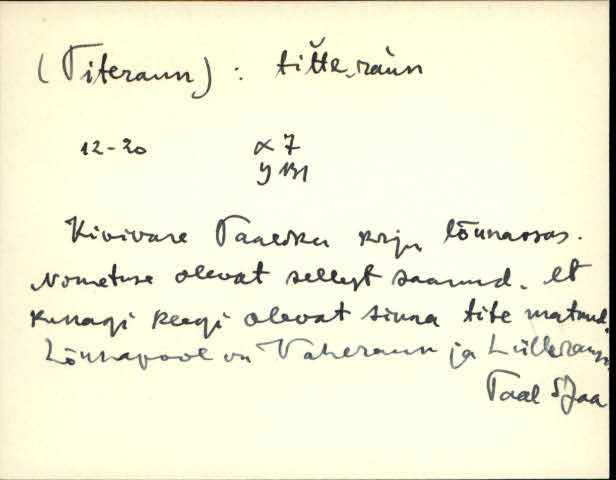 (Titeraun) : titte,raun
12-20 x 7
y 131
Kivivare Taaliku karja lõunaosas.
Nimetuse olevat sellest saanud, et
kunagi keegi olevat sinna tite matnud.
Lõunapool on Vaheraun ja Lülleraun
Taal SJaa